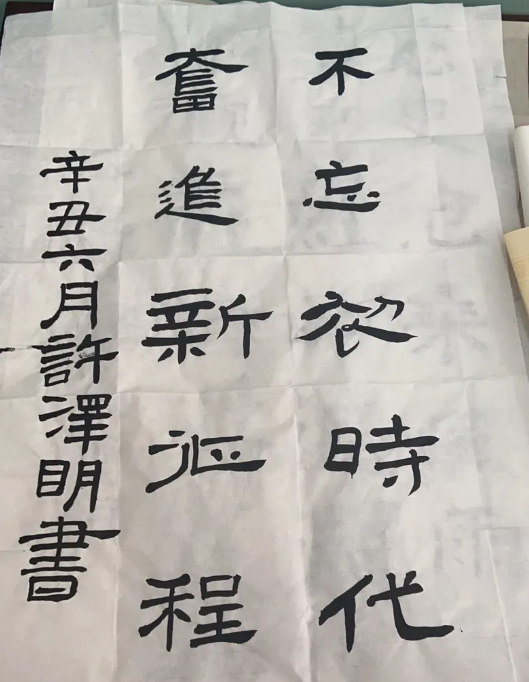 不忘初時代
奮進新征程
辛丑六月許澤明書